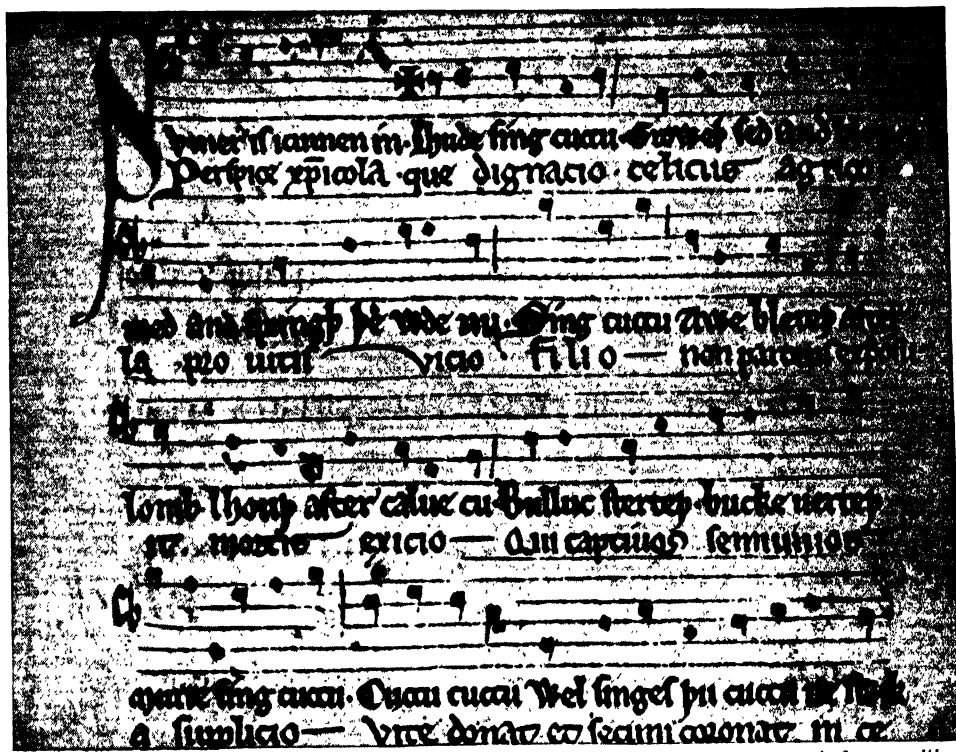 Svmer is icumen in· Lhude sing cuccu· Groweþ sed and bloweþ
Perspice xp̄icola· que dignacio· celicus agrico
med and springþ þe wde nu· Sing cuccu Awe bleteþ after
la pro uitis vicio filio — non parcens exposu
lomb lhouþ after calue cu· Bulluc sterteþ· bucke uerteþ
it· mortis exicio — Qui captiuos semiuiuos
murie sing cuccu· Cuccu cuccu Wel singes þu cuccu ne swik
a supplicio — Vite donat et secum coronat in ce